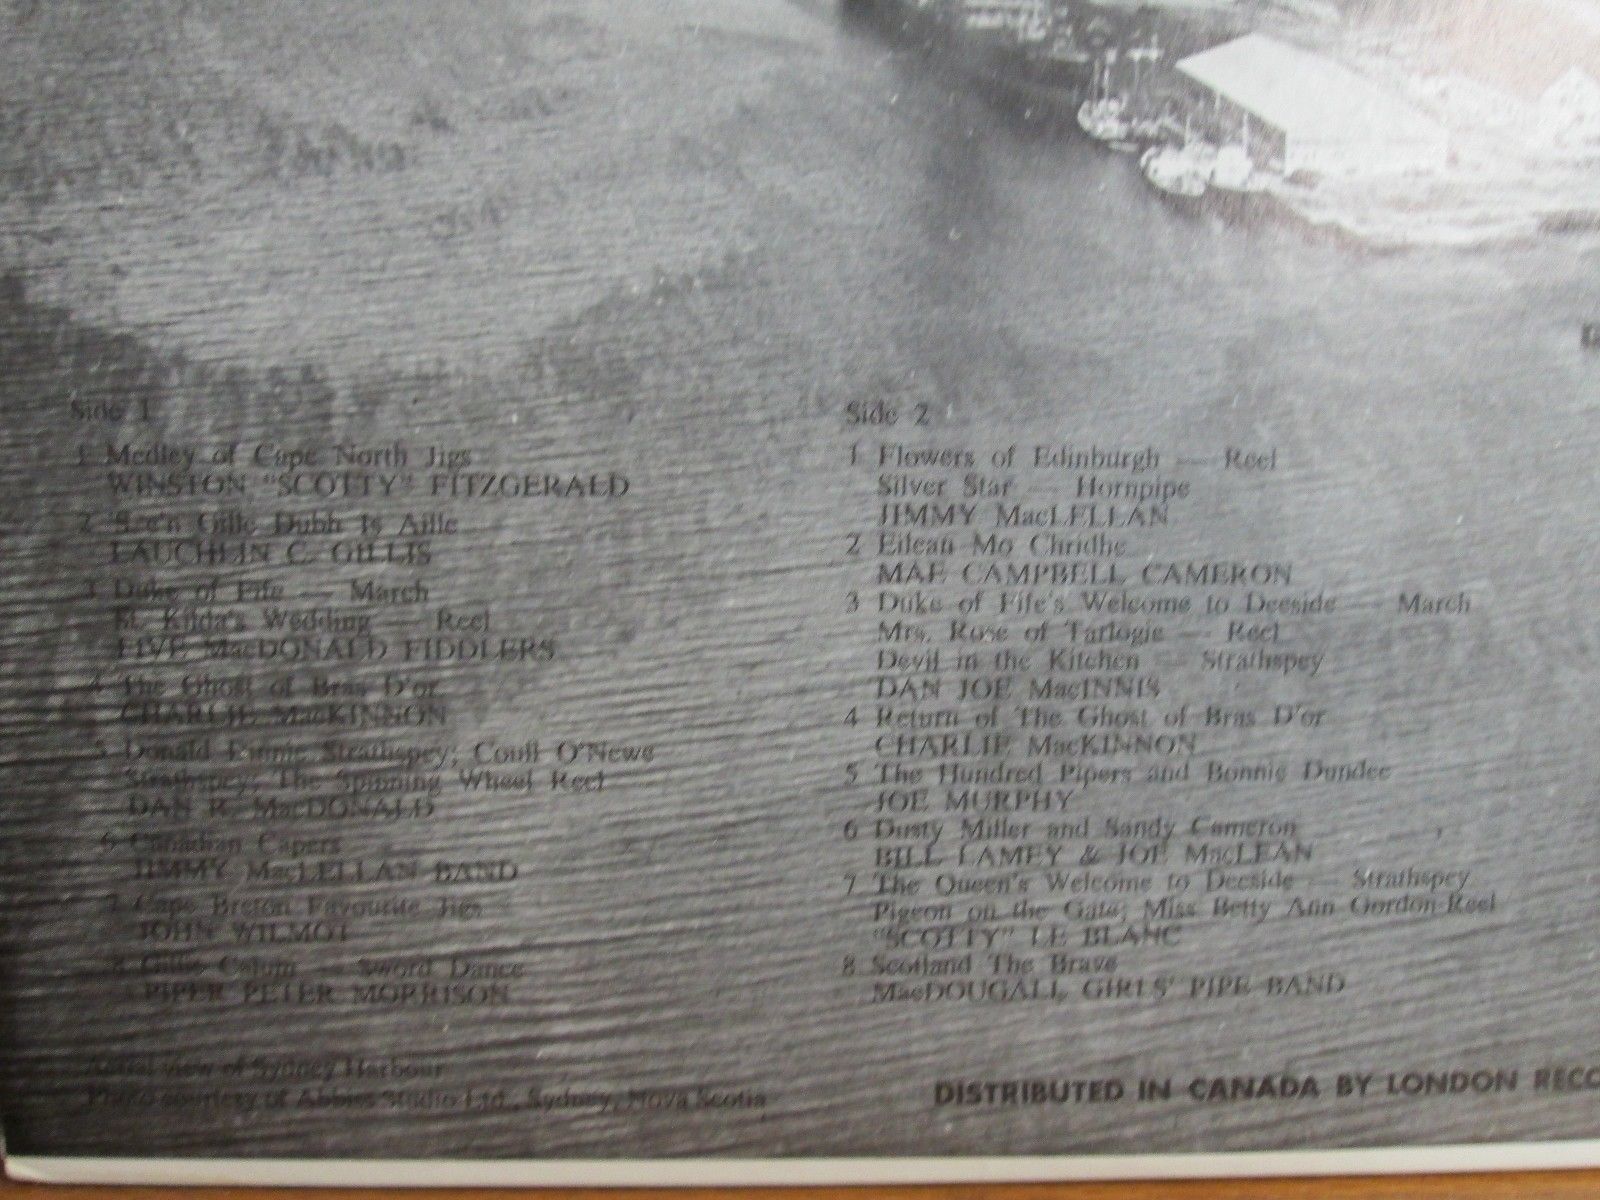 Side 1
1 Medley of Cape North Jigs
WINSTON "SCOTTY" FITZGERALD
2 'S e'n Gille Dubh Is Aille
LAUCHLIN C. GILLIS
3 Duke of Fife — March
St. Kilda's Wedding — Reel
FIVE MacDONALD FIDDLERS
4 The Ghost of Bras D'or
CHARLIE MacKINNON
5 Donald Strathspey; Coull O'Newe
Strathspey; The Spinning Wheel Reel
DAN R. MacDONALD
6 Canadian Capers
JIMMY MacLELLAN BAND
7 Cape Breton Favourite Jigs
JOHN WILMOT
8 Gillie Calum — Sword Dance
PIPER PETER MORRISON
Aerial view of Sydney Harbour
Photo courtesy of Abbiss Studio Ltd., Sydney, Nova Scotia
Side 2
1 Flowers of Edinburgh — Reel
Silver Star — Hornpipe
JIMMY MacLELLAN
2 Eilean Mo Chridhe
MAE CAMPBELL CAMERON
3 Duke of Fife's Welcome to Deeside — March
Mrs. Rose of Tarlogie — Reel
Devil in the Kitchen — Strathspey
DAN JOE MacINNIS
4 Return of The Ghost of Bras D'or
CHARLIE MacKINNON
5 The Hundred Pipers and Bonnie Dundee
JOE MURPHY
6 Dusty Miller and Sandy Cameron
BILL LAMEY & JOE MacLEAN
7 The Queen's Welcome to Deeside — Strathspey
Pigeon on the Gate; Miss Betty Ann Gordon-Reel
"SCOTTY" LE BLANC
8 Scotland The Brave
MacDOUGALL GIRLS' PIPE BAND
DISTRIBUTED IN CANADA BY LONDON RECO